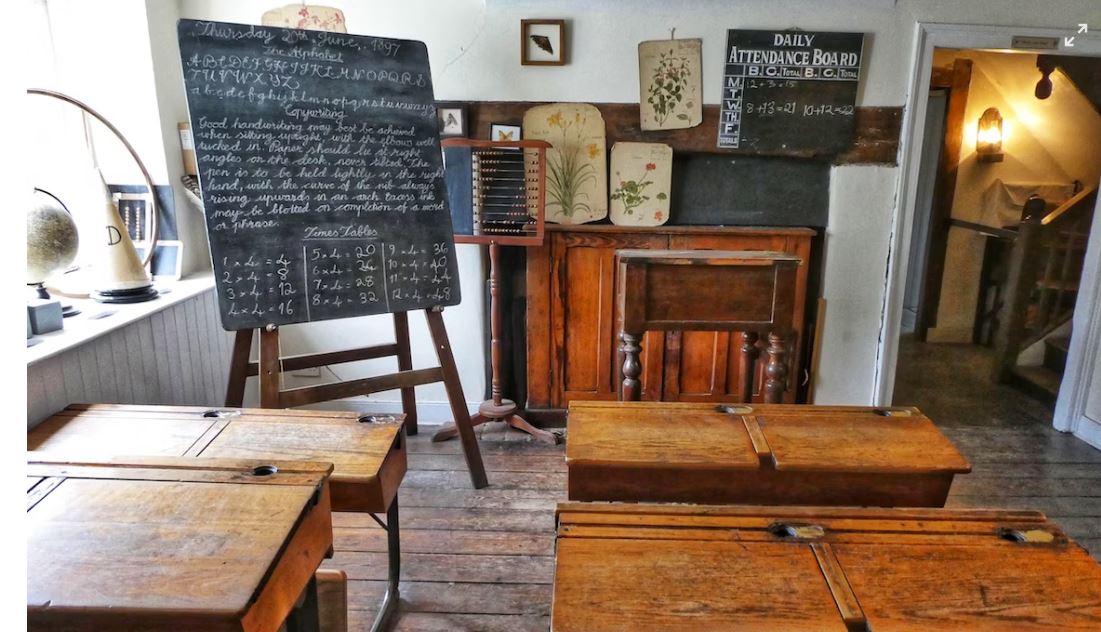 Thursday 20th June, 1897
The Alphabet
A B C D E F G H I J K L M N O P Q R S
T U V W X Y Z
a b c d e f g h i j k l m n o p q r s t u v w x y z
Copywriting
Good handwriting may best be achieved
when sitting upright, with the elbows well
tucked in. Paper should lie at right
angles on the desk, never tilted. The
pen is to be held lightly in the right
hand, with the curve of the nib always
rising upwards in an arch. Excess ink
may be blotted on completion of a word
or phrase.
Times Tables
1 x 4 = 4
2 x 4 = 8
3 x 4 = 12
4 x 4 = 16
5 x 4 = 20
6 x 4 = 24
7 x 4 = 28
8 x 4 = 32
9 x 4 = 36
10 x 4 = 40
11 x 4 = 44
12 x 4 = 48
D
DAILY
ATTENDANCE BOARD
B. G. TOTAL B. G. TOTAL
M. 12 + 3 = 15
T.
W. 8 + 13 = 21 10 + 12 = 22
TH
F.
TOTALS